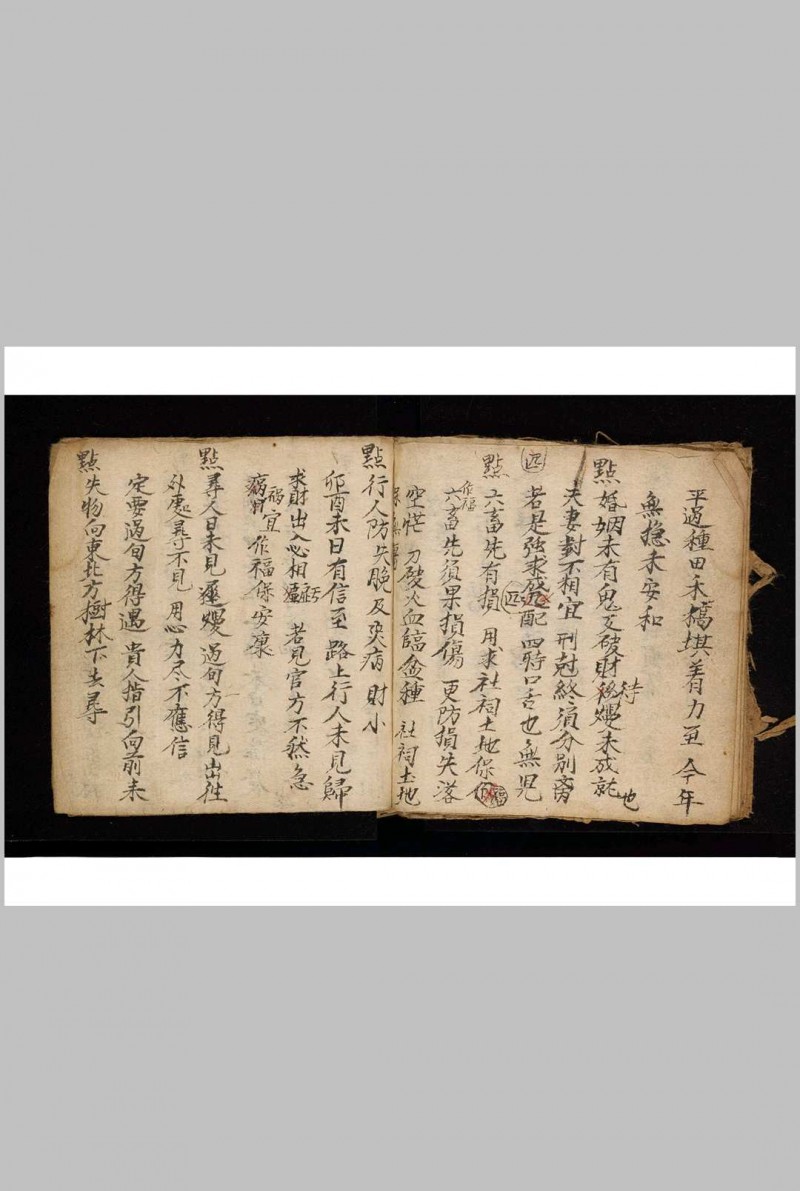 平過種田禾稿堪着力至 今年
無隐未安和
點婚姻未有鬼交破財後嫚未成就
待
也
夫妻對不相宜 刑尅終須分別离
若是強求配 四時口舌也無児
匹
點六畜先有損 用求社祠土地保
福
作福
六畜先須果損傷 更防損失落
空忙 刀殺火血臨盆種 社祠土地
點行人防失脫及灾病 財小
卯酉未日有信至 路上行人未見歸
求財出入心相 若見官方不然急
福
宜作福保安康
點尋人日未見遲嫚 過旬方得見出往
外處尋不見 用心力尽不應信
定要過旬方得遇 貴人指引向前未
點失物向東北方樹林下去尋